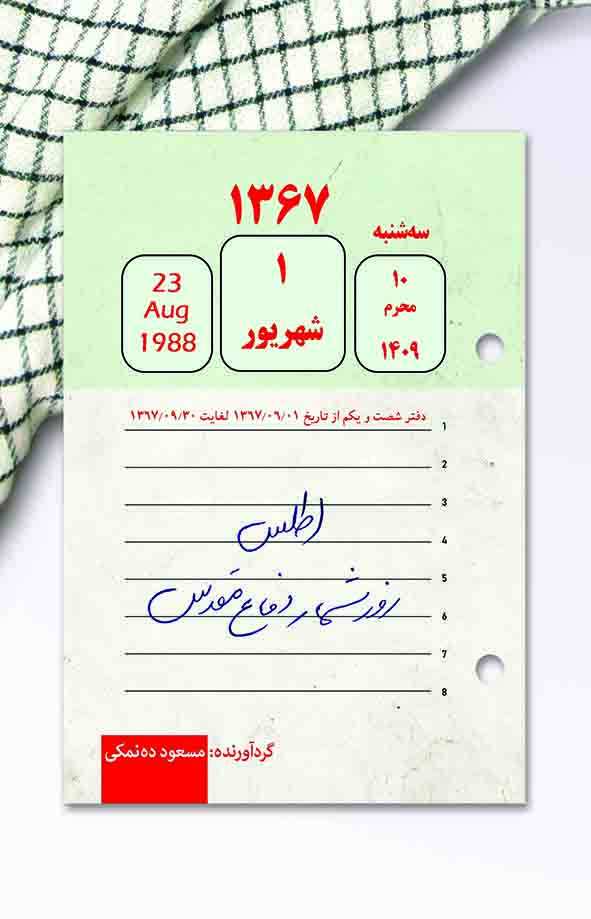 ۱۳۶۷
سه‌شنبه
۱۰
محرم
۱۴۰۹
۱
شهریور
23
Aug
1988
دفتر شصت و یکم از تاریخ ۱۳۶۷/۰۶/۰۱ لغایت ۱۳۶۷/۰۹/۳۰
1
2
3
4
5
6
7
8
اطلس
روزشمار دفاع مقدس
گردآورنده: مسعود ده‌نمکی